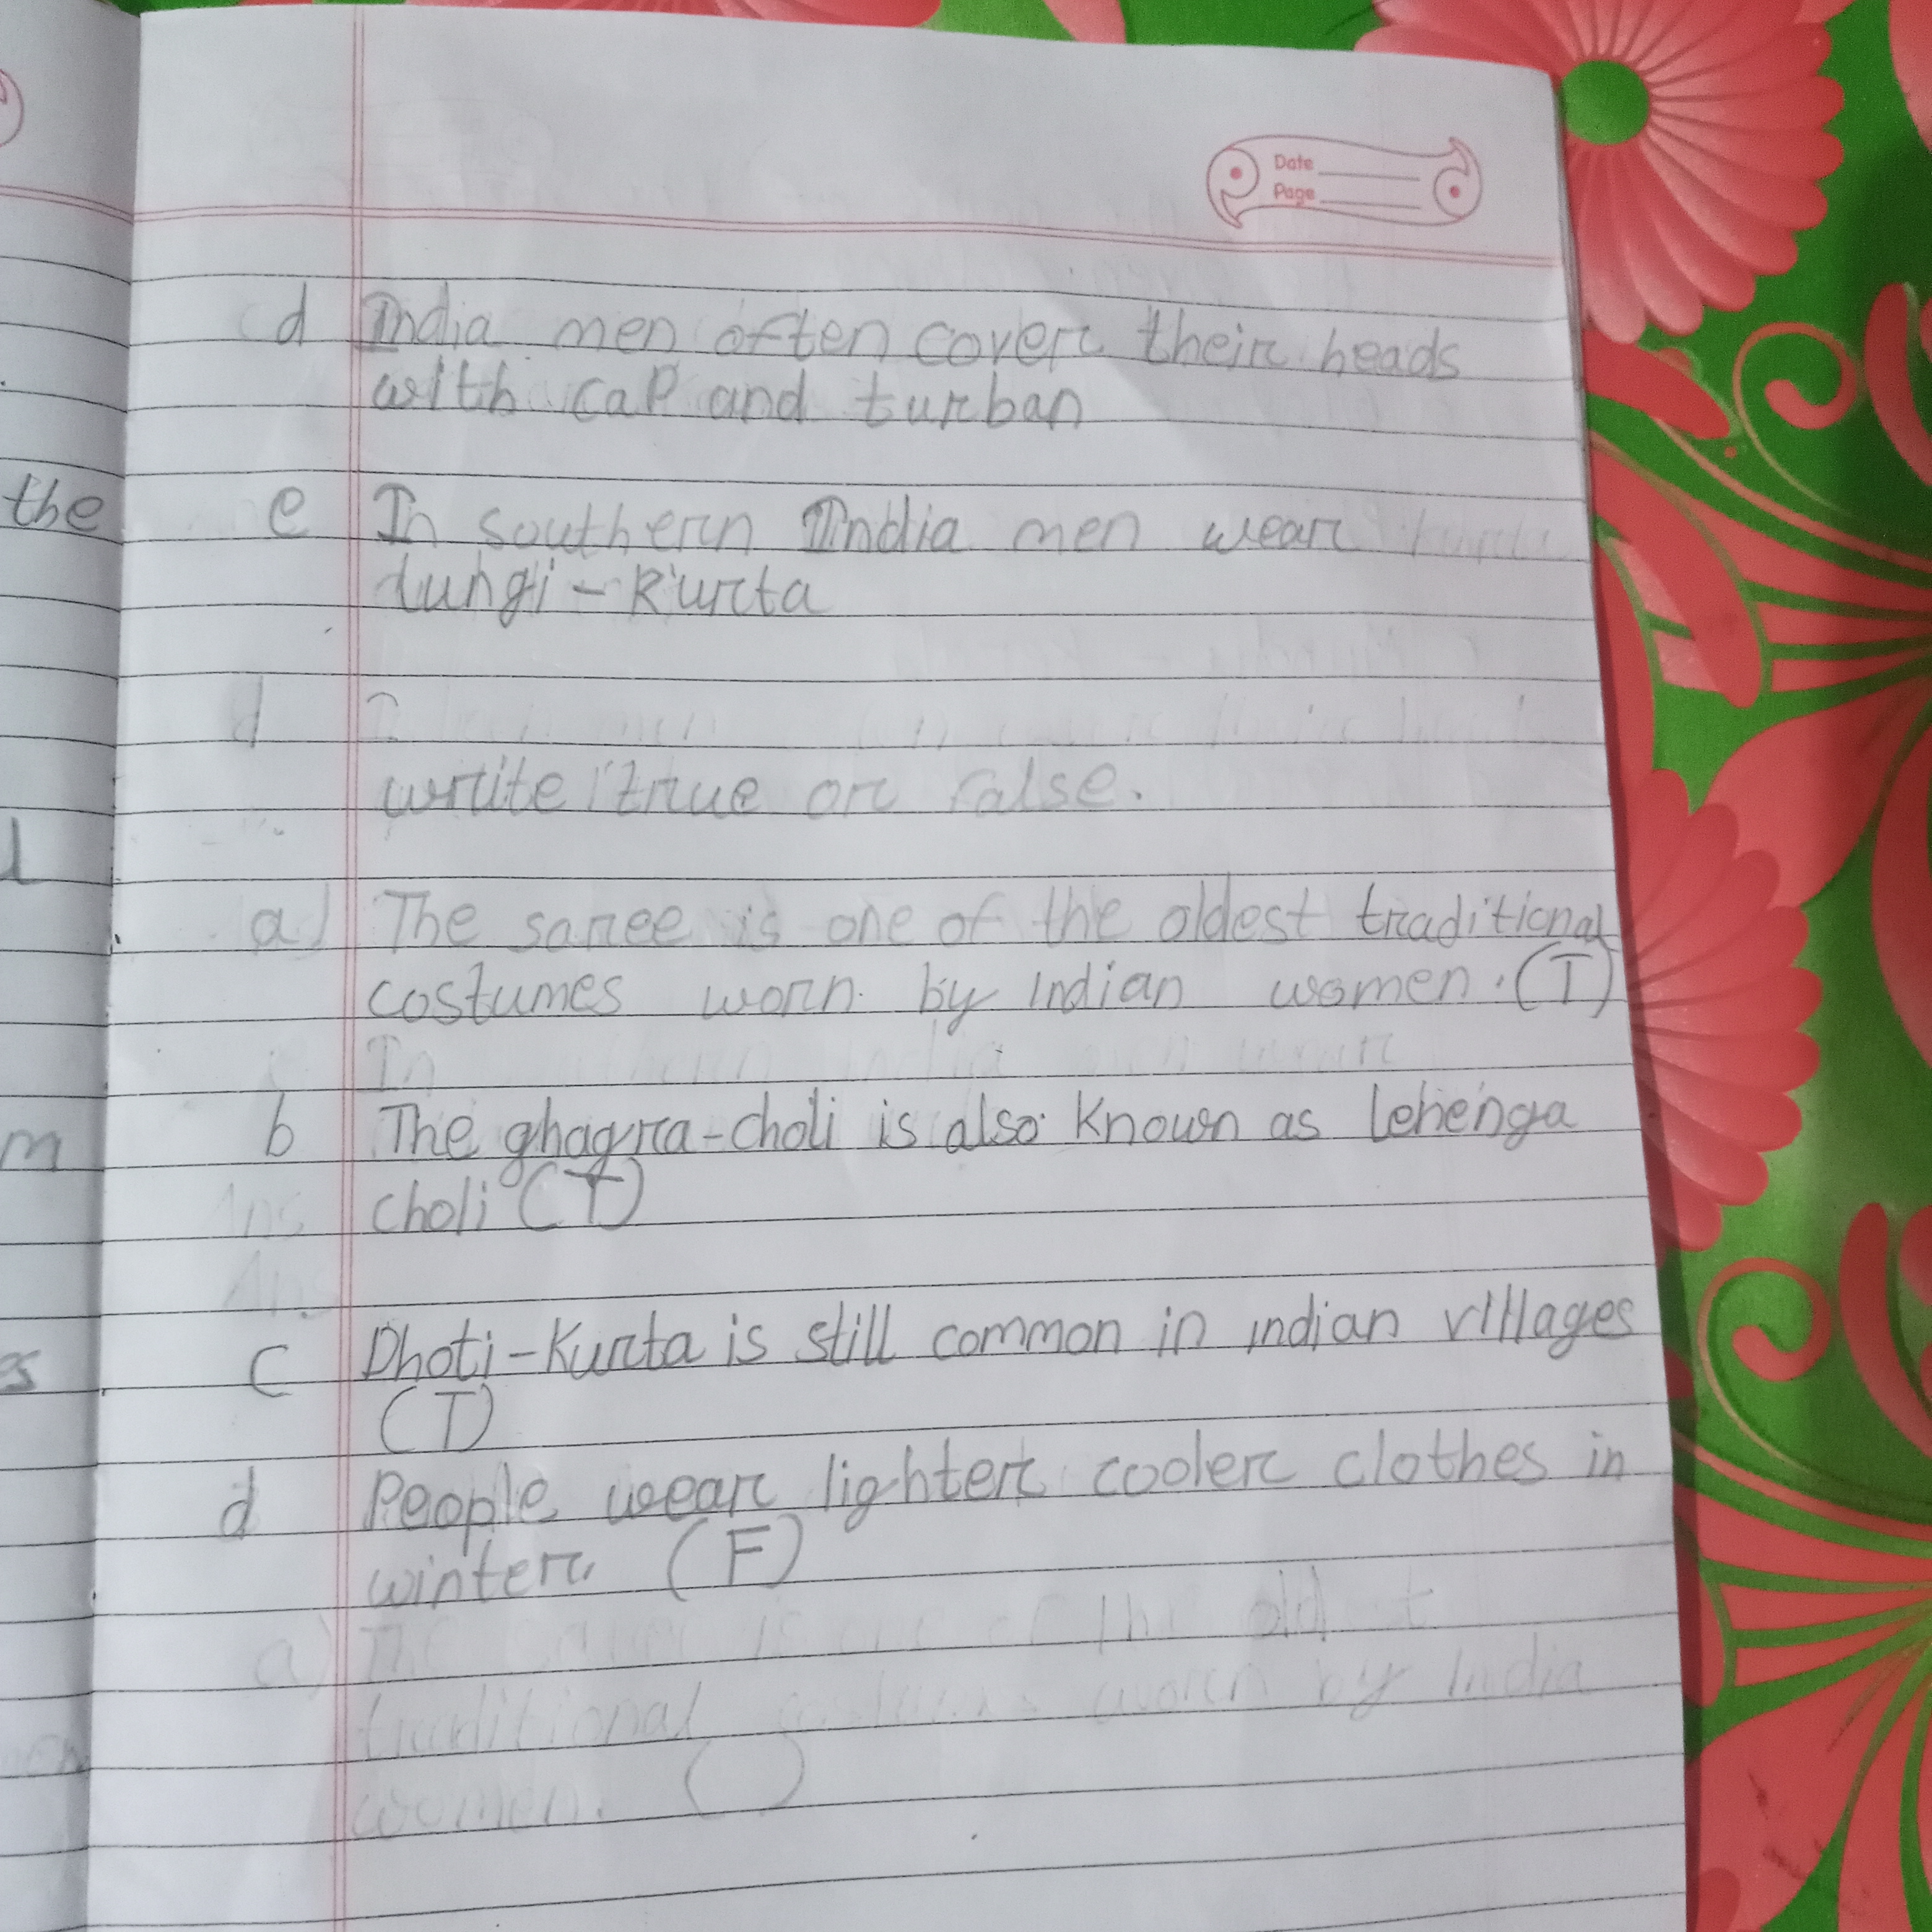 Date
Page
the
d India men often cover their heads
with cap and turban
e In southern India men wear
lungi - kurta
d
write true or false.
l
a) The saree is one of the oldest traditional
costumes worn by indian women. (T)
In
m
b The ghagra-choli is also known as lehenga
choli (T)
Ans
Ans
es
c Dhoti-Kurta is still common in indian villages
(T)
d People wear lighter cooler clothes in
winter. (F)
a) The is one of the oldest
traditional worn by India
women. ( )